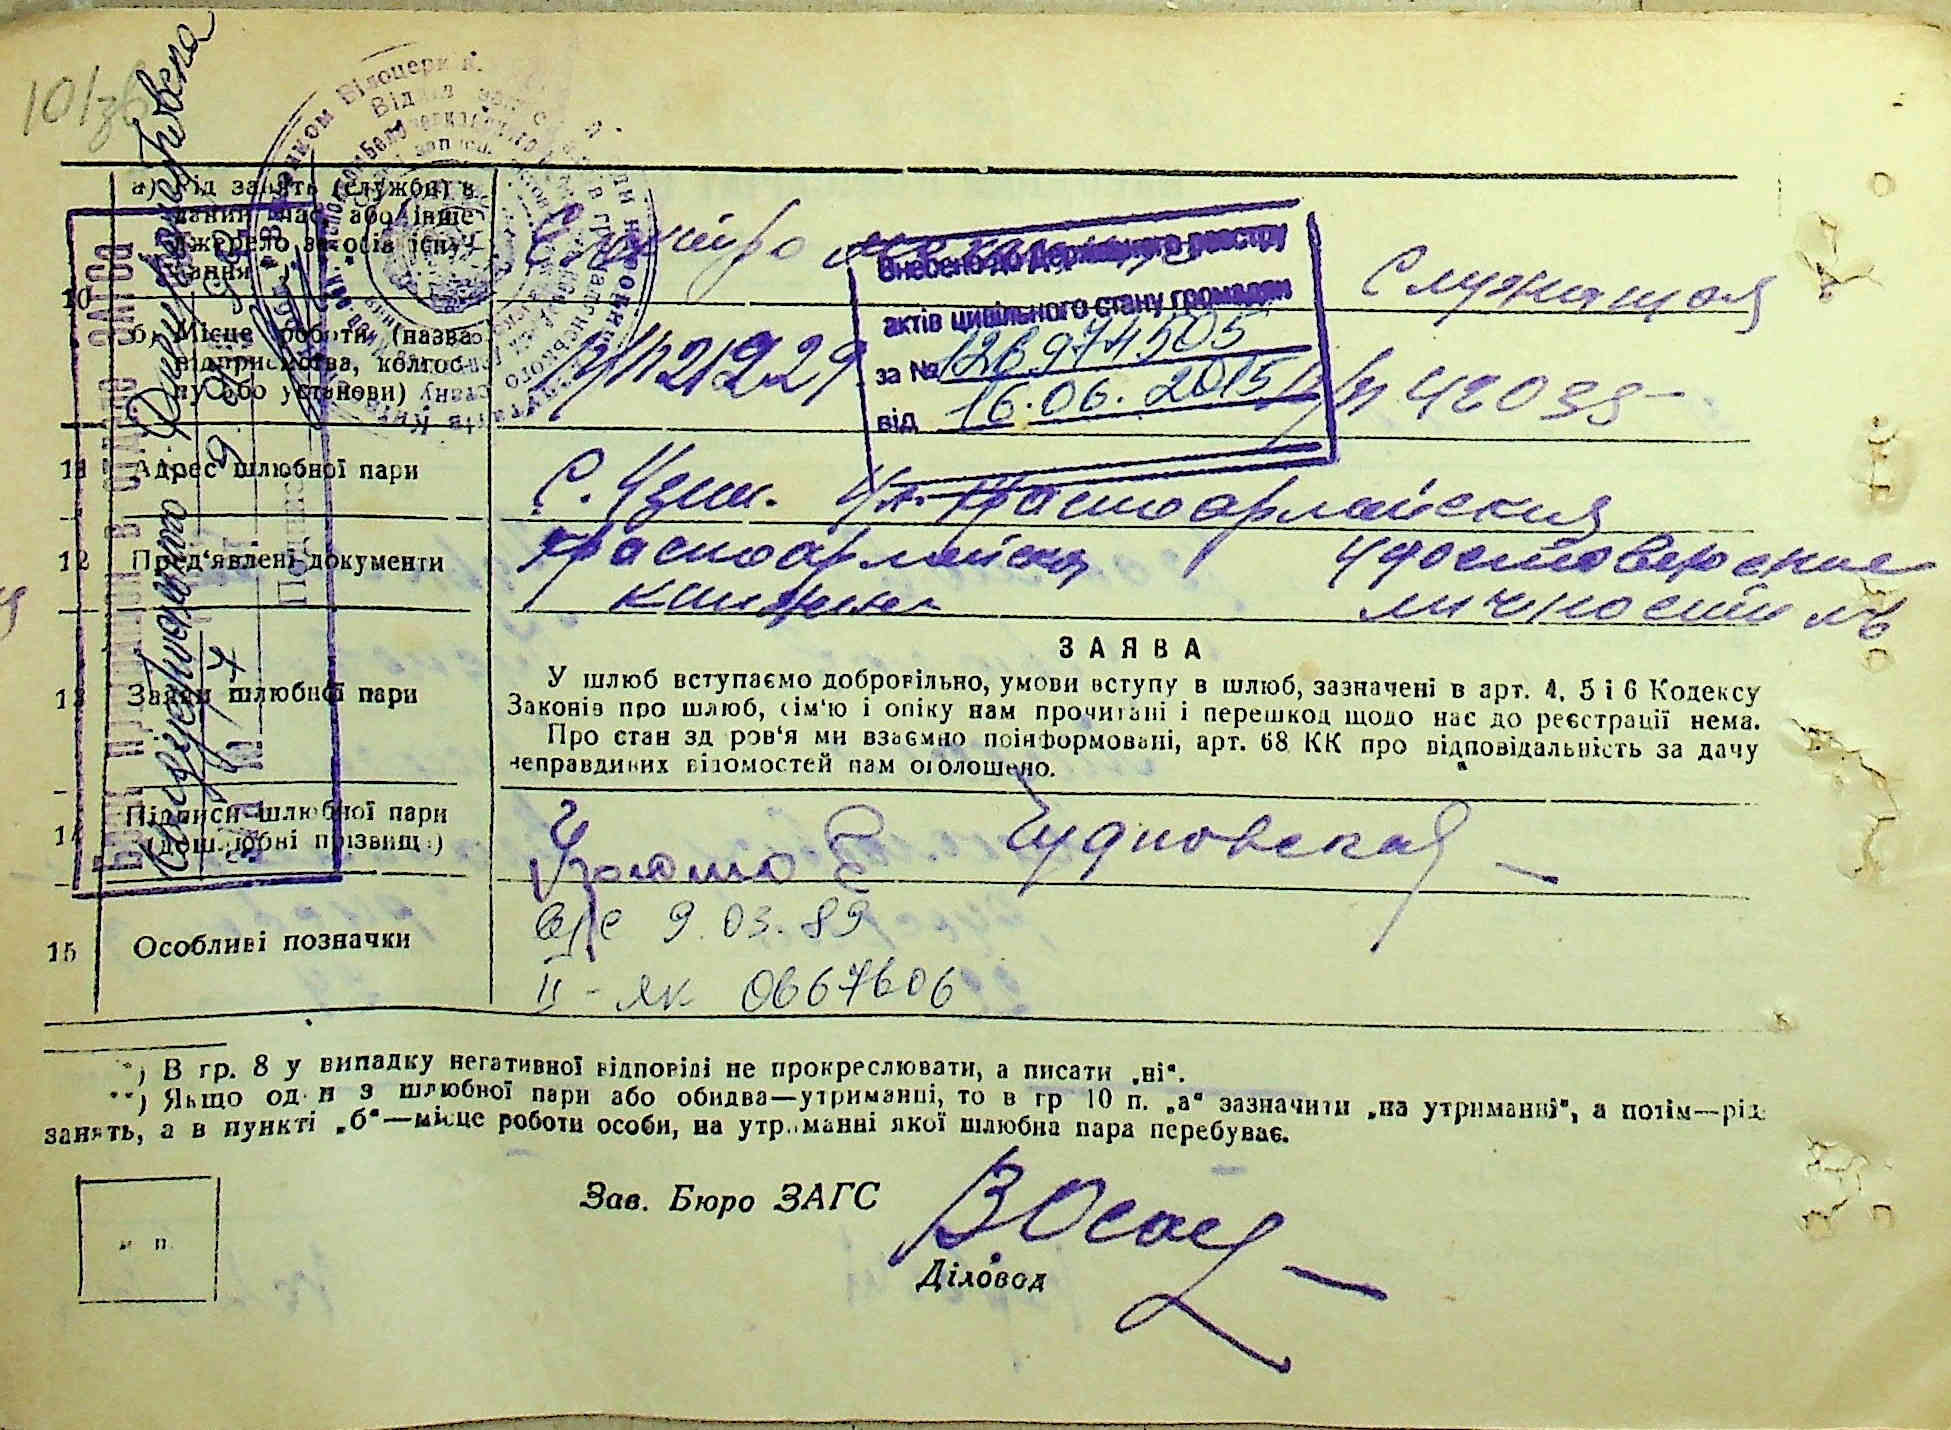 10
а) Рід занять (служби) в
даний час або інше
джерело засобів існу-
вання
Электро механик
Служащая
б) Місце роботи (назва
підприємства, колгос-
пу або установи)
п/п 21929
п/п 42039
Внесено до Державного реєстру
актів цивільного стану громадян
за № 126974505
від 16.06.2015
11 Адрес шлюбної пари
С. Узин. Ул. Красноармейская
12 Пред'явлені документи
Красноармейская
книжка
удостоверение
личности
13 Заяви шлюбної пари
ЗАЯВА
У шлюб вступаємо добровільно, умови вступу в шлюб, зазначені в арт. 4, 5 і 6 Кодексу
Законів про шлюб, сім'ю і опіку нам прочитані і перешкод щодо нас до реєстрації нема.
Про стан здоров'я ми взаємно поінформовані, арт. 68 КК про відповідальність за дачу
неправдивих відомостей нам оголошено.
14 Підписи шлюбної пари
(дошлюбні прізвища)
Чудновская
15 Особливі позначки
9.03.89
II - ЯК 0667606
*) В гр. 8 у випадку негативної відповіді не прокреслювати, а писати „ні“.
**) Якщо один з шлюбної пари або обидва—утриманці, то в гр 10 п. „а“ зазначити „на утриманні“, а потім—рід
занять, а в пункті „б“—місце роботи особи, на утриманні якої шлюбна пара перебуває.
Зав. Бюро ЗАГС
Діловод
м п.